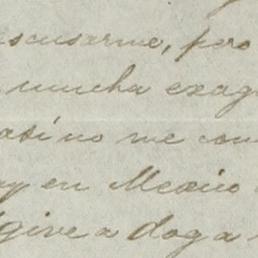 scusarme, pero
mucha exag
así no me com
y en Mexico
give a dog a